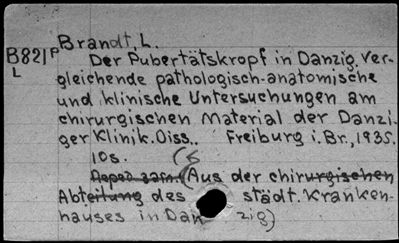 Brandt, L.
B821P Der Pubertätskropf in Danzig. Ver-
L gleichende pathologisch-anatomische
und klinische Untersuchungen am
chirurgischen Material der Danzi-
ger Klinik. Diss.. Freiburg i. Br., 1935.
10s.
(Aus der chirurgischen
Abteilung des städt. Kranken-
hauses in Danzig)